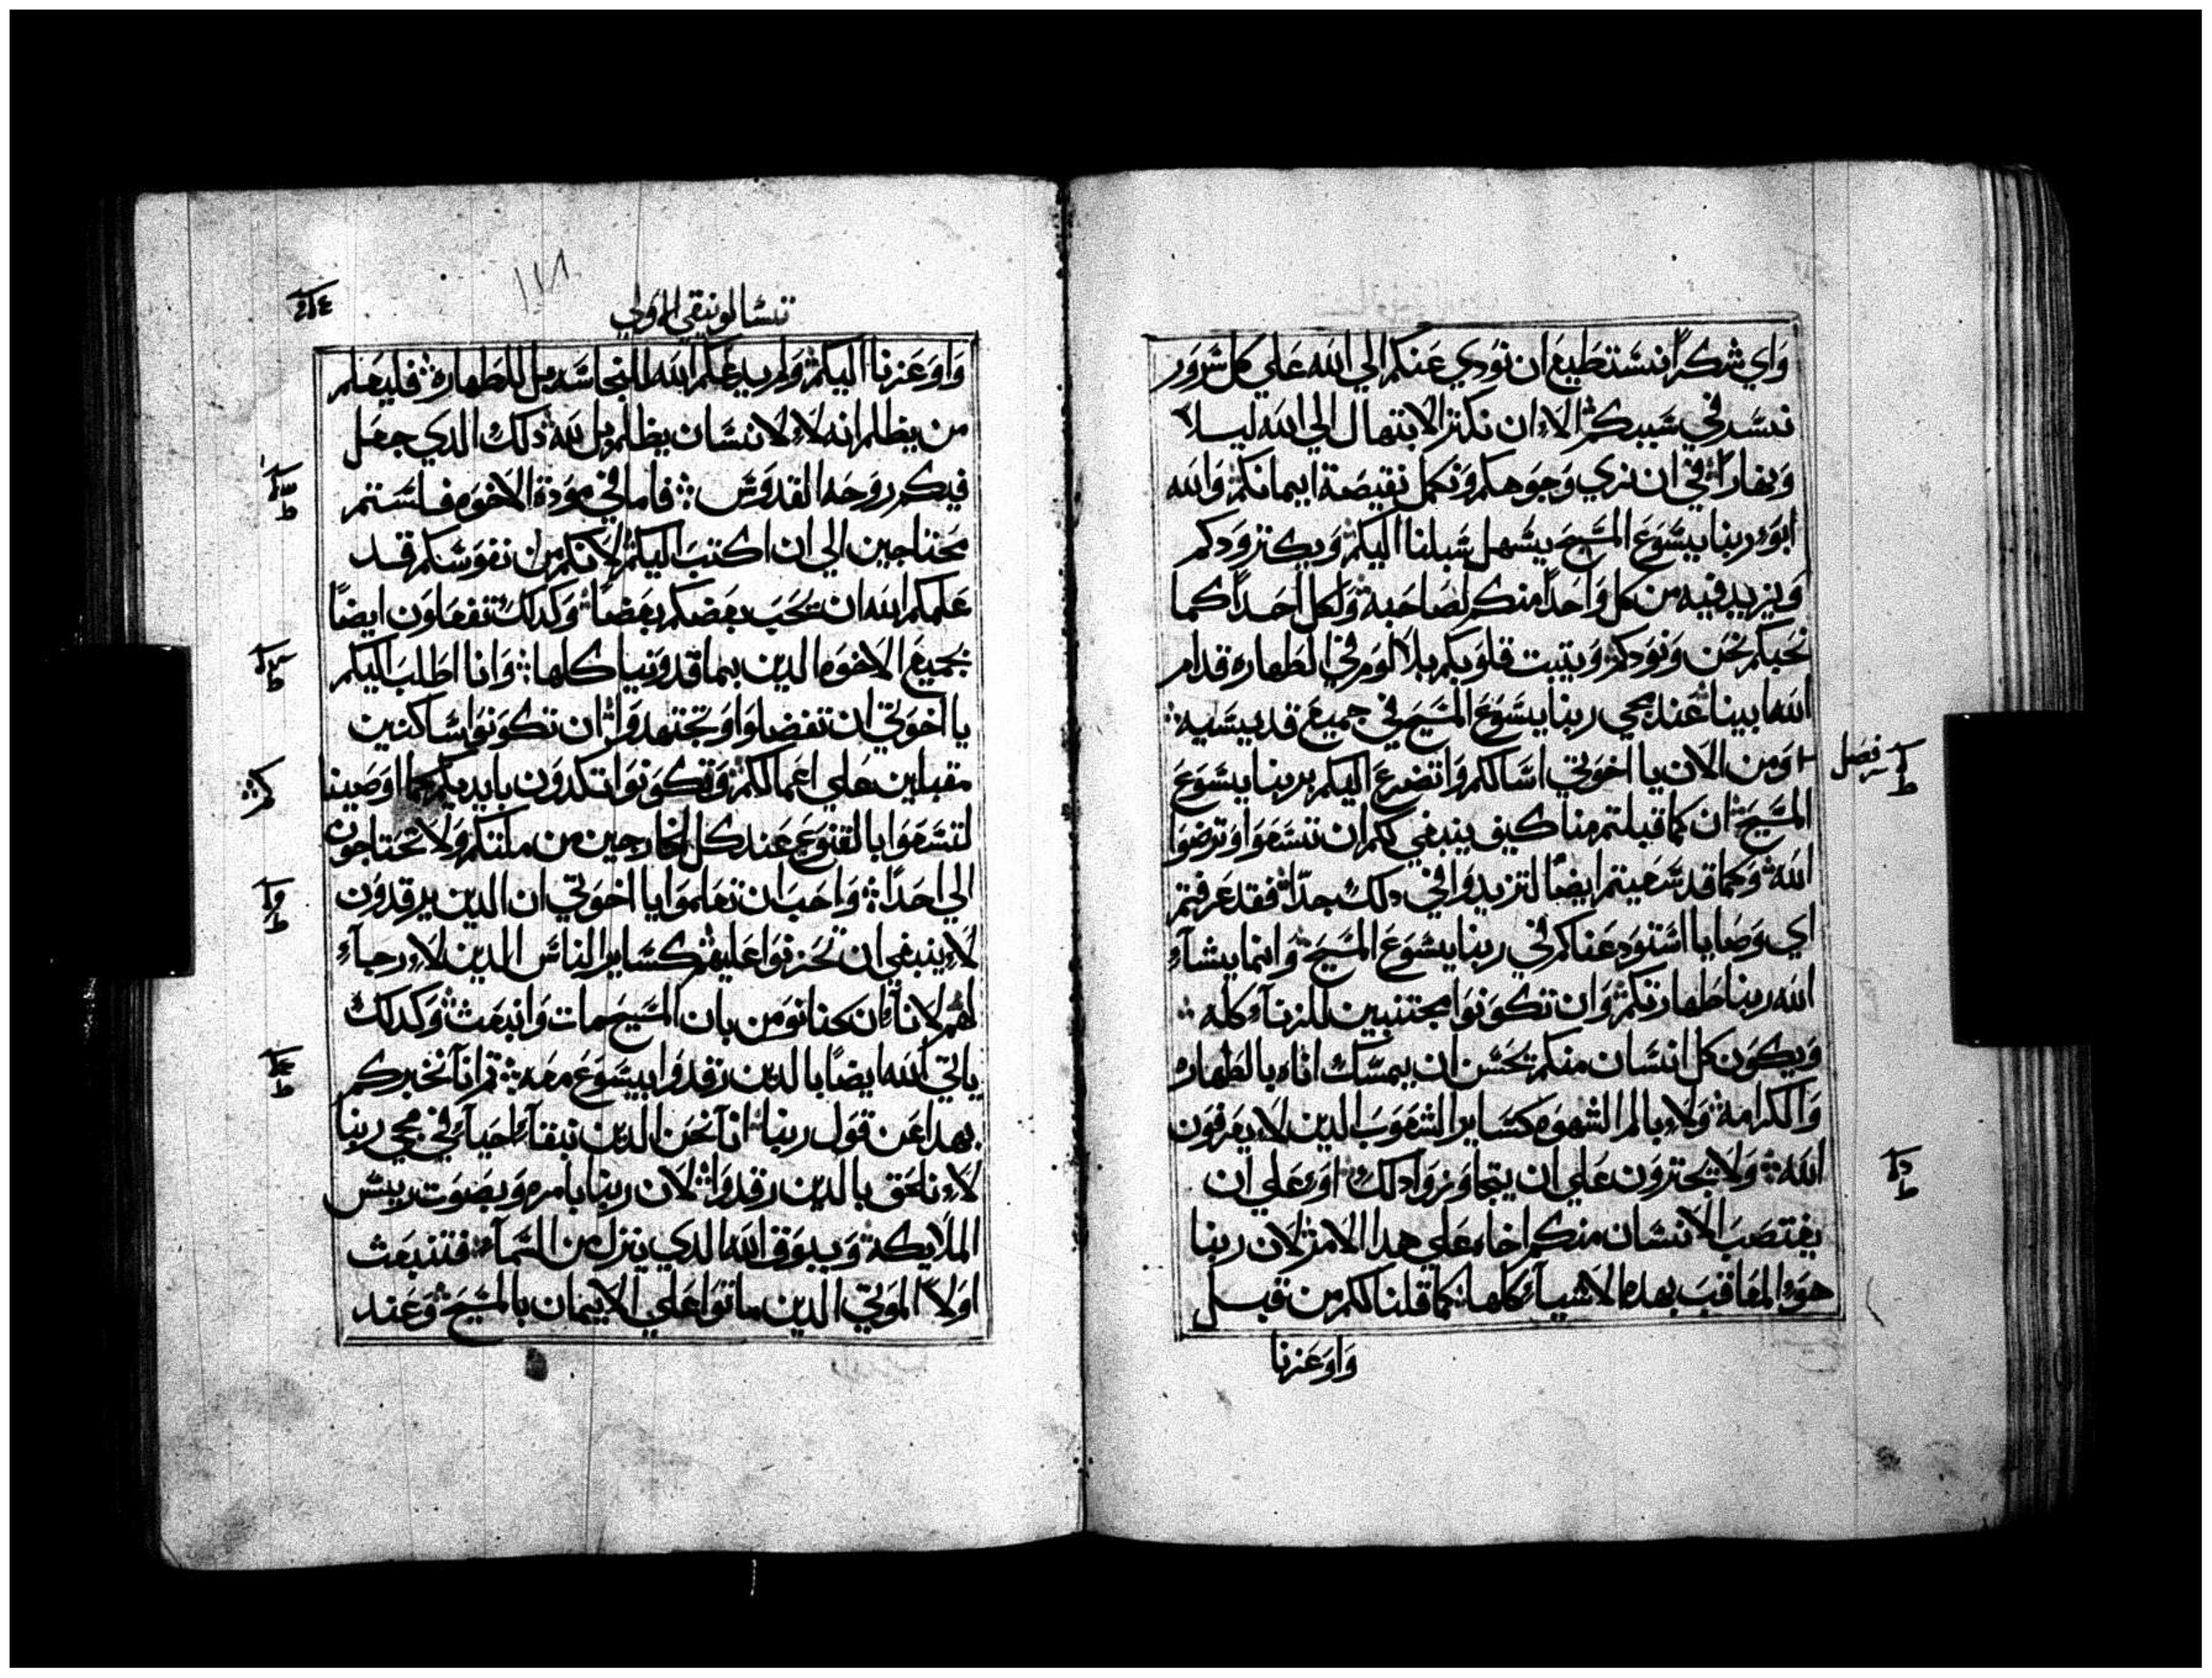 وَاي شكراً نستطيع ان نودي عنكم الي الله علي كل سرور
نسر في سببكم الا ان نكتر الابتهال الي الله ليلا
ونهارا في ان نري وجوهكم ونكمل نقيصة ايمانكم والله
ابو ربنا يسوع المسيح يسهل سبلنا اليكم ويكتر ودكم
ويزيد فيه من كل واحداً منكم لصاحبه ولكل احداً كما
نحبكم نحن ونودكم ويتبت قلوبكم بلا لوم في الطهاره قدام
الله ابينا عند مجي ربنا يسوع المسيح في جميع قديسيه
فصل
ومن الان يا اخوتي اسالكم واتضرع اليكم بربنا يسوع
المسيح ان كما قبلتم منا كيف ينبغي لكم ان تسعوا وترضوا
الله وكما قد سعيتم ايضاً لتزيدوا في دلك جدّا فقد عرفتم
اي وصايا استودعناكم في ربنا يسوع المسيح وانما يشآء
الله ربنا طهارتكم وان تكونوا مجتنبين للزنآء كله
ويكون كل انسان منكم يحسن ان يمسك اناه بالطهاره
والكرامه ولا بالم الشهوه كساير الشعوب الدين لا يعرفون
الله ولا يجترون علي ان يتجاوزوا دلك او علي ان
يغتصب الانسان منكم اخاه علي هدا الامر لان ربنا
هو المعاقب بهده الاشيآء كلها كما قلنا لكم من قبل
واوعزنا
تسالونيقي الاولي
واوعزنا اليكم ولم يدعكم الله للنجاسه بل للطهاره فليعلم
من يظلم انه لا لانسان يظلم بل لله دلك الدي جعل
فيكم روحه القدوس فاما في مودة الاخوه فلستم
محتاجين الي ان اكتب اليكم لانكم من نفوسكم قد
علمكم الله ان يحب بعضكم بعضاً وكدلك تفعلون ايضاً
بجميع الاخوه الدين بماقدونيا كلها وانا اطلب اليكم
يا اخوتي ان تفضلوا وتجتهدوا ان تكونوا ساكنين
مقبلين علي اعمالكم وتكونوا تكدون بايديكم كما اوصينا
لتسعوا بالقنوع عند كل الخارجين من ملتكم ولا تحتاجون
الي احداً واحب ان تعلموا يا اخوتي ان الدين يرقدون
لا ينبغي ان تحزنوا عليهم كساير الناس الدين لا رجآء
لهم لانآ ان كنا نومن بان المسيح مات وانبعث وكدلك
ياتي الله ايضاً بالدين رقدوا بيسوع معه تم انا نخبركم
بهدا عن قول ربنا انا نحن الدين نبقآ احيآء في مجي ربنا
لا نلحق بالدين رقدوا لان ربنا بامره وبصوت رييس
الملايكة وببوق الله الدي ينزل من السمآء فتنبعث
اولاً الموتي الدين ماتوا علي الايمان بالمسيح وعند